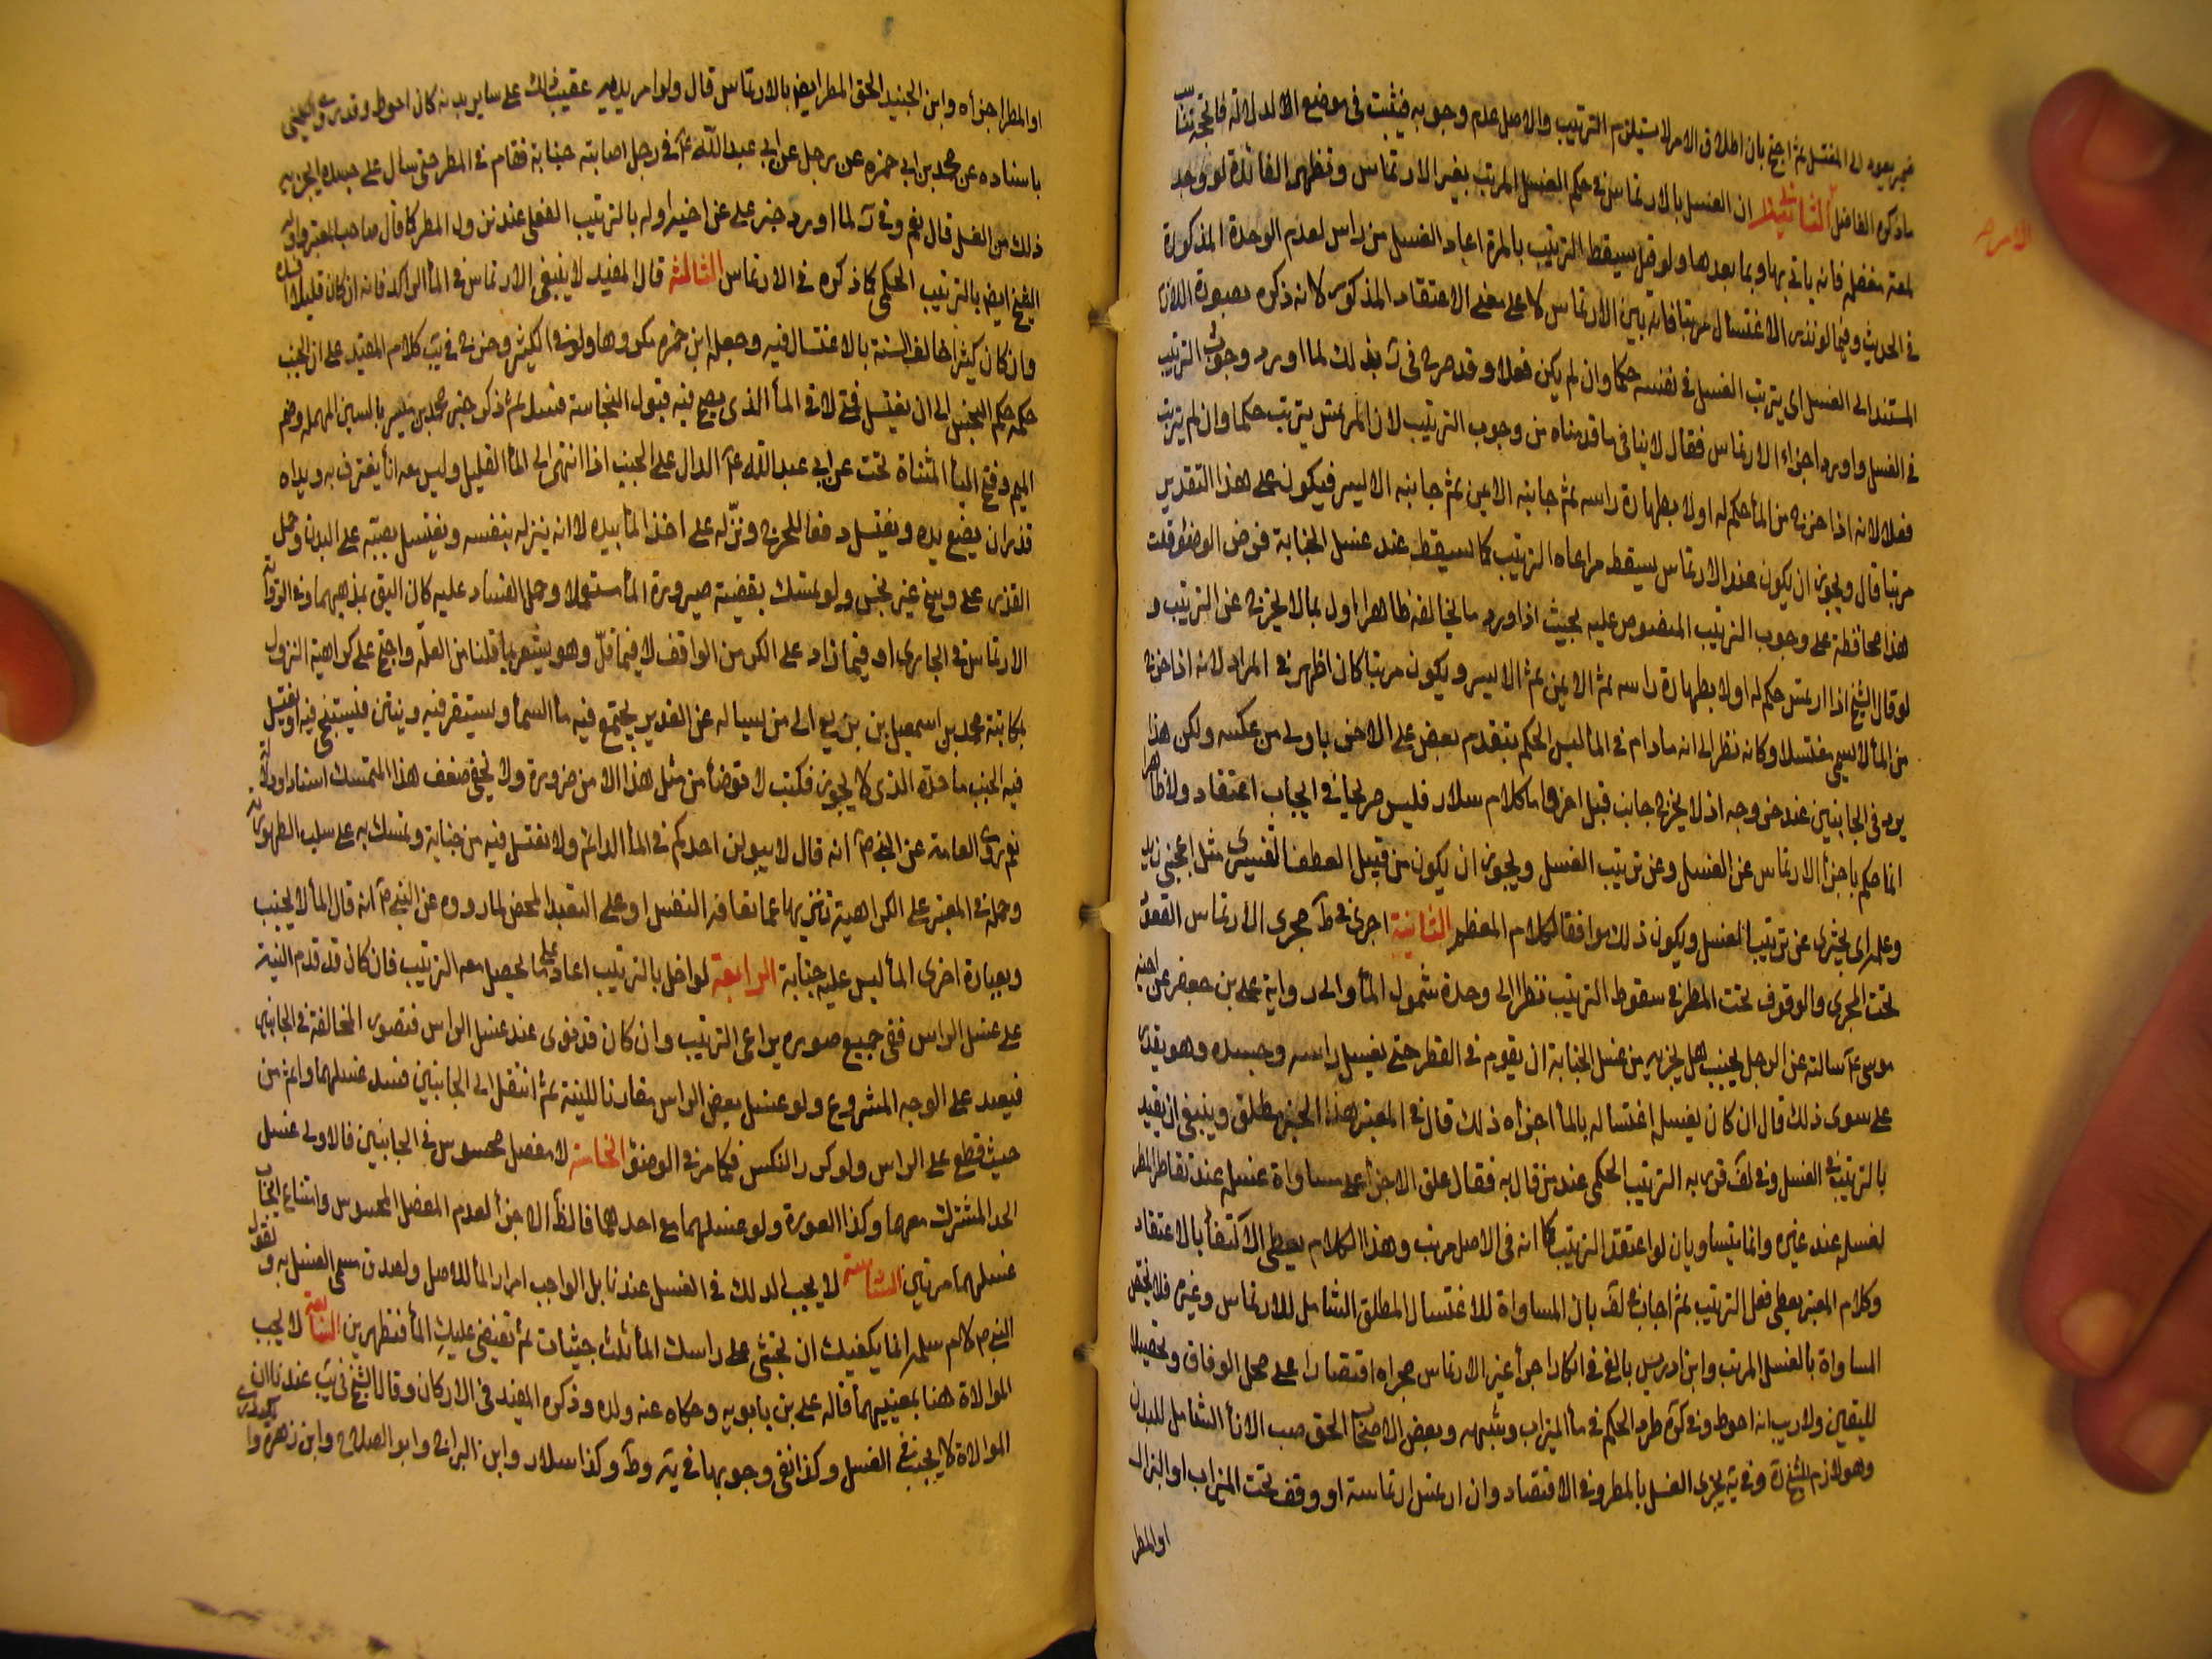 ضمير يعود الى المغتسل ثم احتج بان اطلاق الامر لا يستلزم الترتيب والاصل عدم وجوبه فيثبت في موضع الدلالة فاتجه تناسب
ما ذكره الفاضل الثاني ان الغسل بالارتماس في حكم الغسل المرتب بغير الارتماس وتظهر الفائدة لو وجد
لمعة مغفلة فانه ياتي بها وبما بعدها ولو قيل بسقوط الترتيب بالمرة اعاد الغسل من راس لعدم الوحدة المذكورة
في الحديث وفيما لو نذر الاغتسال مرتبا فانه يبرئ الارتماس لا على معنى الاعتقاد المذكور لانه ذكره بصورة اللازم
المستند الى الغسل اى يترتب الغسل في نفسه حكما وان لم يكن فعلا وقد صرح في بذلك لما اورد وجوب الترتيب
في الغسل واورد اجزاء الارتماس فقال لا ينافي ما قدمناه من وجوب الترتيب لان المرتمس يترتب حكما وان لم يترتب
فعلا لانه اذا خرج من الماء حكم له اولا بطهارة راسه ثم جانبه الايمن ثم جانبه الايسر فيكون على هذا التقدير
مرتبا قال ويجوز ان يكون عند الارتماس يسقط مراعاه الترتيب كما يسقط عند غسل الجنابة فرض الوضوء قلت
هذا محافظة على وجوب الترتيب المنصوص عليه بحيث اذا ورد ما يخالفه ظاهرا اول بما لا يخرج عن الترتيب و
لو قال الشيخ اذا ارتمس حكم له اولا بطهارة راسه ثم الايمن ثم الايسر ويكون مرتبا كان اظهر في المراد لانه اذا خرج
من الماء لا يسمى مغتسلا وكانه نظر الى انه ما دام في الماء ليس الحكم بتقدم بعض على الاخر باولى من عكسه ولكن هذا
يرد في الجانبين عند خروجه اذ لا يخرج جانب قبل اخر واما كلام سلار فليس صريحا في ايجاب اعتقاد ولا ظاهرا
انما حكم باجزاء الارتماس عن الغسل وعن ترتيب الغسل ويجوز ان يكون من قبيل العطف التفسيرى مثل اعجبني زيد
وعلمه اى يجزى عن ترتيب الغسل ويكون ذلك موافقا لكلام المعظم الثانية اجرى في ط مجرى الارتماس القعود
تحت المجرى والوقوف تحت المطر في سقوط الترتيب نظرا الى وحدة شمول الماء والى رواية علي بن جعفر عن اخيه
موسى ع سالته عن الرجل يجنب هل يجزيه من غسل الجنابة ان يقوم في القطر حتى يغسل راسه وجسده وهو يقدر
على سوى ذلك قال ان كان يغسله اغتساله بالماء اجزأه ذلك قال في المعتبر هذا الخبر مطلق وينبغي ان يقيد
بالترتيب في الغسل وفي لف قربه الترتيب الحكمي عند من قال به فقال علق الاجزاء على مساواة غسله عند تقاطر المطر
لغسله عند غيره وانما يتساويان لو اعتقد الترتيب كما انه في الاصل مرتب وهذا الكلام يعطي الاكتفاء بالاعتقاد
وكلام المعتبر يعطى فعل الترتيب ثم اجاب في لف بان المساواة للاغتسال المطلق الشامل للارتماس وغيره فلا تختص
المساواة بالغسل المرتب وابن ادريس بالغ في انكار اجراء غير الارتماس مجراه اقتصارا على محل الوفاق وتحصيلا
لليقين ولا ريب انه احوط وفي كره طرد الحكم في ماء الميزاب وشبهه وبعض الاصحاب الحق صب الاناء الشامل للبدن
وهو لازم للشيخ ره وفي يه يجزى الغسل بالمطر وفي الاقتصاد وان ارتمس ارتماسة او وقف تحت الميزاب او البزال
او المطر
او المطر اجزأه وابن الجنيد الحق المطر ايض بالارتماس قال ولو امر يديه عقيب ذلك على ساير بدنه كان احوط وقد روى الكليني
باسناده عن محمد بن ابي حمزه عن رجل عن ابي عبد الله ع في رجل اصابته جنابة فقام في المطر حتى سال على جسده ايجزيه
ذلك من الغسل قال نعم وفي لما اورد خبر علي عن اخيه اوله بالترتيب الفعلي عند نزول المطر كما قال صاحب المعتبر واوله
الشيخ ايض بالترتيب الحكمي كما ذكره في الارتماس الثالثة قال المفيد لا ينبغي الارتماس في الماء الراكد فانه ان كان قليلا افسده
وان كان كثيرا خالف السنة بالاغتسال فيه وجعله ابن حمزه مكروها ولو في الكثير وخرج في يب كلام المفيد على ان الجنب
حكمه حكم النجس الى ان يغتسل فمتى لاقى الماء الذى يصح فيه قبول النجاسة فسد ثم ذكر خبر محمد بن ميسر بالسين المهملة وضم
الميم وفتح الياء المثناة تحت عن ابي عبد الله ع الدال على الجنب اذا انتهى الى الماء القليل وليس معه اناء يغترف به ويداه
قذرتان يضع يده ويغتسل دفعا للحرج ونزله على اخذ الماء بيده لا انه ينزله بنفسه ويغتسل بصبه على البدن وحمل
القذر على وسخ غير نجس ولو تمسك بقضية صيرورة الماء مستعملا وحمل الفساد عليه كان اليق بمذهبهما وفي
الارتماس في الجارى او فيما زاد على الكر من الواقف لا فيما قل وهو يشعر بما قلنا من العلة واحتج على كراهية النزول
بمكاتبة محمد بن اسمعيل بن بزيع الى من يساله عن الغدير يجتمع فيه ماء السماء ويستقى فيه فيستنجى فيه او يغتسل
فيه الجنب ما حده الذى لا يجوز فكتب لا توضأ من مثل هذا الا من ضرورة ولا يخفى ضعف هذا المتمسك اسنادا ودلالة
نعم روى العامة عن النبي ص انه قال لا يبولن احدكم في الماء الدائم ولا يغتسل فيه من جنابة وتمسك به على سلب الطهورية
وحمله في المعتبر على الكراهية تنزيها عما تعافه النفس او على التعبد المحض لما رووه عن النبي ص انه قال الماء لا يجنب
وبعبارة اخرى الماء ليس عليه جنابة الرابعة لو اخل بالترتيب اعاد على ما يحصل معه الترتيب فان كان قد قدم النية
على غسل الراس ففي جميع صوره يراعى الترتيب وان كان قد نوى عند غسل الراس فتصور المخالفة في الجانبين
فيعيد على الوجه المشروع ولو غسل بعض الراس مقارنا للنية ثم انتقل الى الجانبين فسد غسلهما واتم من
حيث قطع على الراس ولو كرر النكس فكما مر في الوضوء الخامسة لا مفصل محسوس في الجانبين فالاولى غسل
الحد المشترك معهما وكذا العورة ولو غسلهما مع احدهما فالظ الاجزاء لعدم المفصل المحسوس وامتناع ايجاب
غسلهما مرتين السادسة لا يجب الدلك في الغسل عندنا بل الواجب امرار الماء للاصل ولصدق مسمى الغسل به ولقول
النبي ص لام سلمه انما يكفيك ان تحثي على راسك الماء ثلث حثيات ثم تفيضي عليك الماء فتطهرين السابعة لا يجب
الموالاة هنا بمعنييهما قاله علي بن بابويه وحكاه عنه ولده وذكره المفيد في الاركان وقال الشيخ في يب عندنا ان
الموالاة لا يجب في الغسل وكذا نفى وجوبها في يه وط وكذا سلار وابن البراج وابو الصلاح وابن زهرة